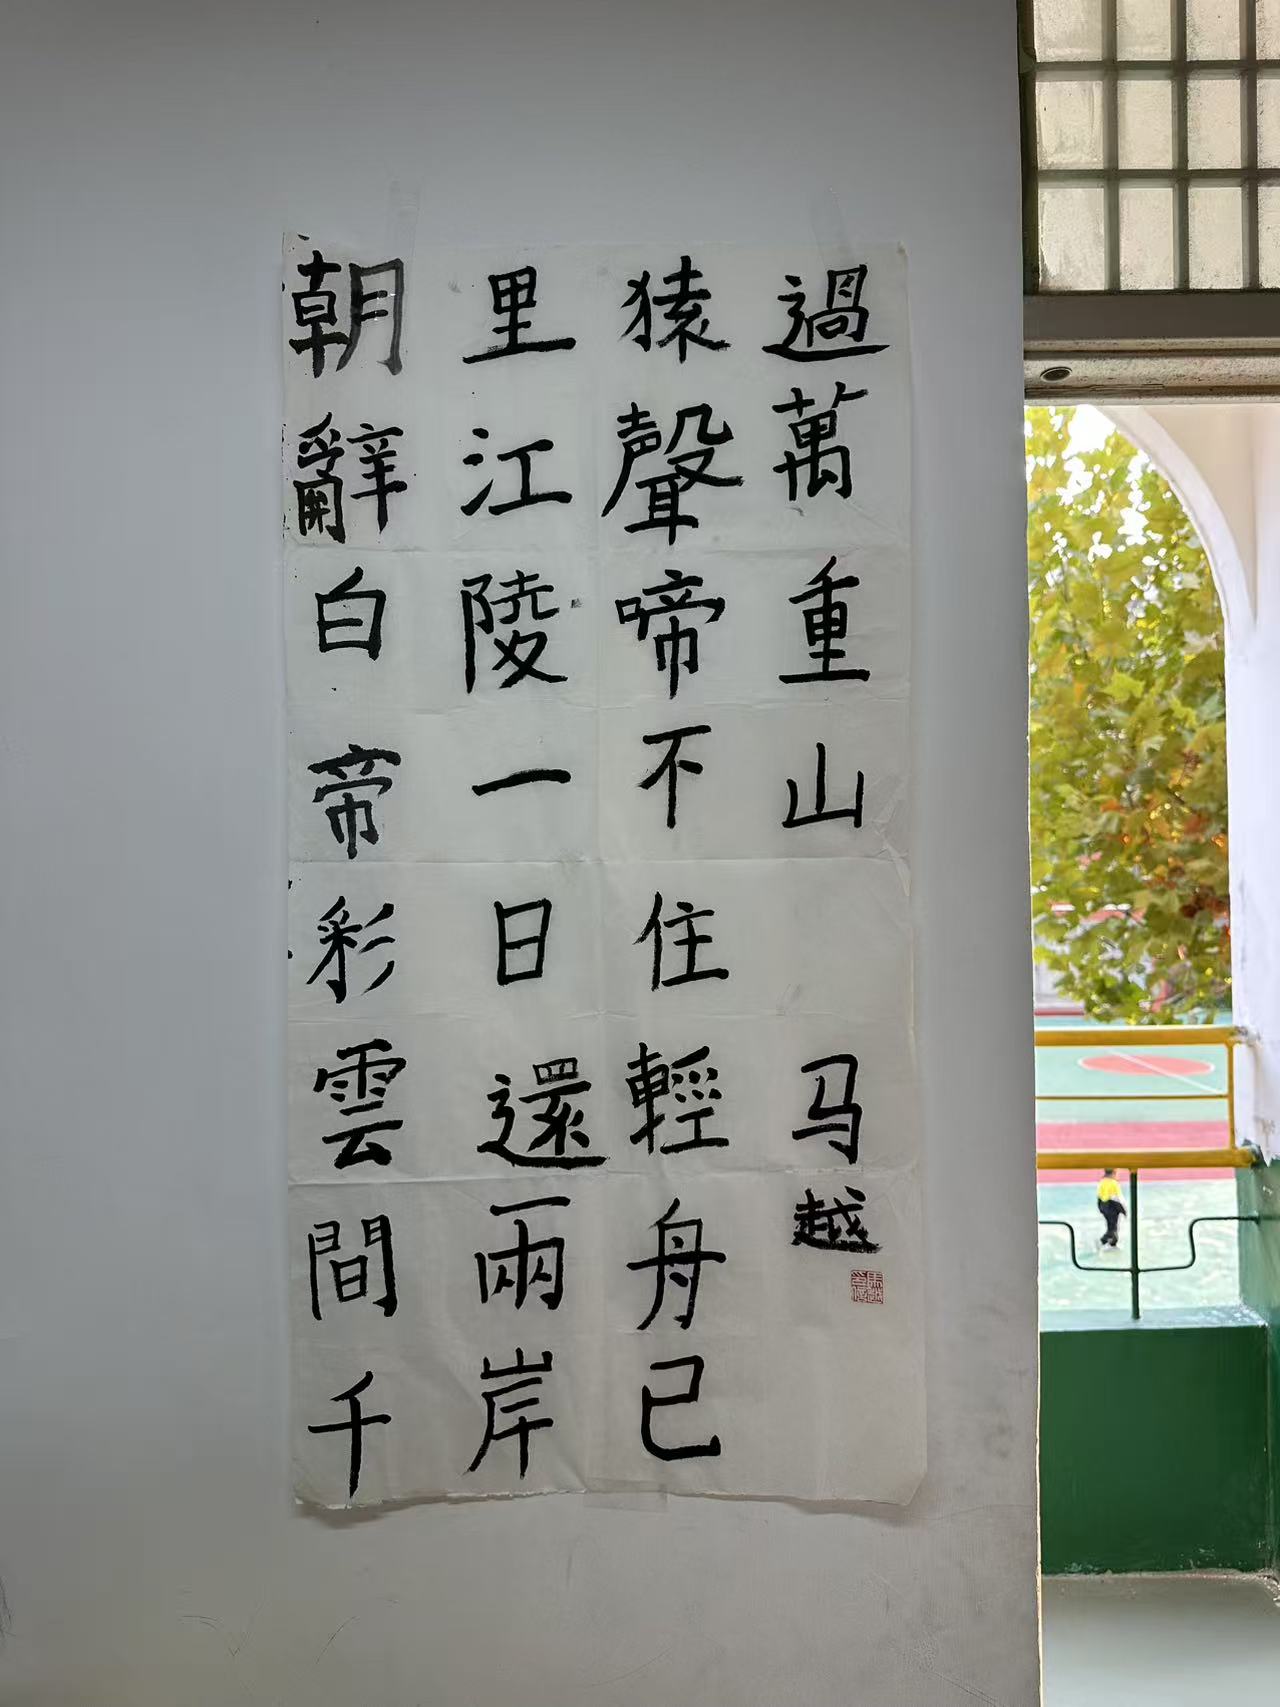 朝辭白帝彩雲間千
里江陵一日還兩岸
猿聲啼不住輕舟已
過萬重山
马越
馬越